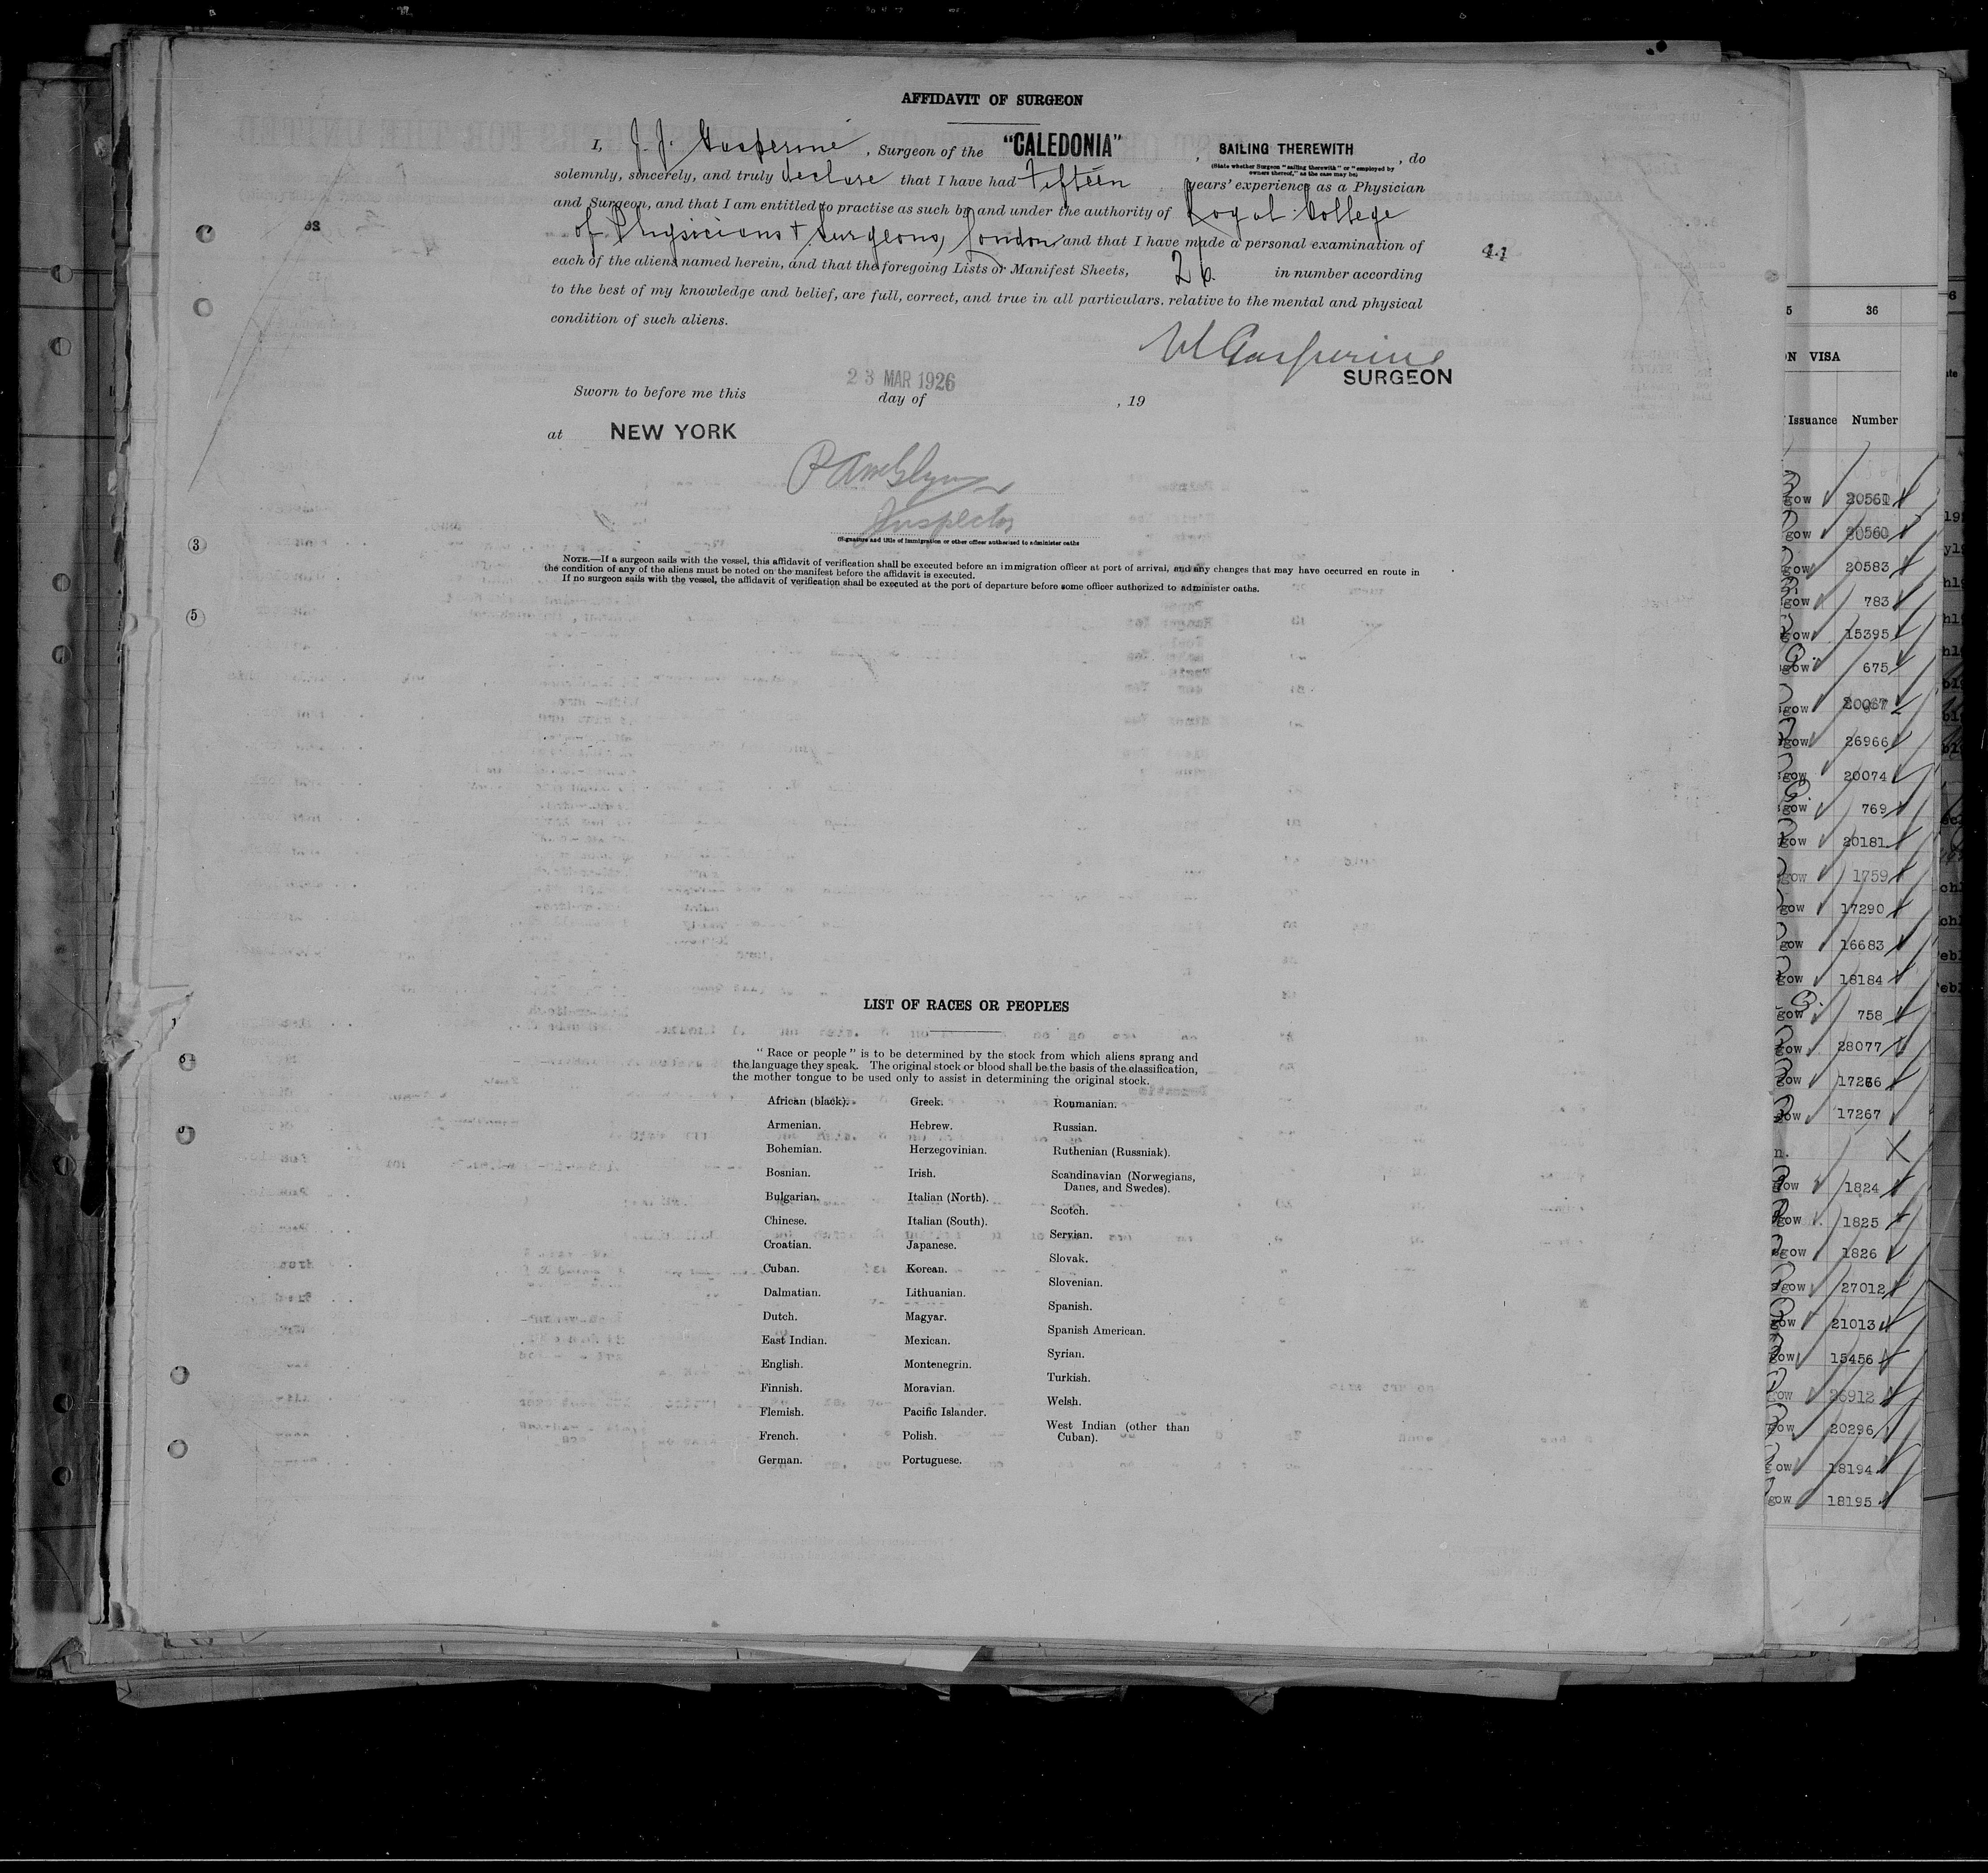 AFFIDAVIT OF SURGEON
I, J. J. Gasperine, Surgeon of the "CALEDONIA", SAILING THEREWITH, do
(State whether Surgeon "sailing therewith" or "employed by
owners thereof," as the case may be)
solemnly, sincerely, and truly declare that I have had Fifteen years' experience as a Physician
and Surgeon, and that I am entitled to practise as such by and under the authority of Royal College
of Physicians + Surgeons, London and that I have made a personal examination of
each of the aliens named herein, and that the foregoing Lists or Manifest Sheets, 26. in number according
to the best of my knowledge and belief, are full, correct, and true in all particulars. relative to the mental and physical
condition of such aliens.
41
Gasperine
SURGEON
23 MAR 1926
Sworn to before me this day of , 19
at NEW YORK
Inspector
(Signature and title of immigration or other officer authorized to administer oaths
NOTE.—If a surgeon sails with the vessel, this affidavit of verification shall be executed before an immigration officer at port of arrival, and any changes that may have occurred en route in
the condition of any of the aliens must be noted on the manifest before the affidavit is executed.
If no surgeon sails with the vessel, the affidavit of verification shall be executed at the port of departure before some officer authorized to administer oaths.
3
5
LIST OF RACES OR PEOPLES
"Race or people" is to be determined by the stock from which aliens sprang and
the language they speak. The original stock or blood shall be the basis of the classification,
the mother tongue to be used only to assist in determining the original stock.
African (black).
Armenian.
Bohemian.
Bosnian.
Bulgarian.
Chinese.
Croatian.
Cuban.
Dalmatian.
Dutch.
East Indian.
English.
Finnish.
Flemish.
French.
German.
Greek.
Hebrew.
Herzegovinian.
Irish.
Italian (North).
Italian (South).
Japanese.
Korean.
Lithuanian.
Magyar.
Mexican.
Montenegrin.
Moravian.
Pacific Islander.
Polish.
Portuguese.
Roumanian.
Russian.
Ruthenian (Russniak).
Scandinavian (Norwegians,
Danes, and Swedes).
Scotch.
Servian.
Slovak.
Slovenian.
Spanish.
Spanish American.
Syrian.
Turkish.
Welsh.
West Indian (other than
Cuban).
36
VISA
Issuance Number
gow 20561
gow 20560
gow 20583
gow 783
gow 15395
gow 675
gow 20067
gow 26966
gow 20074
gow 769
gow 20181
gow 1759
gow 17290
gow 16683
gow 18184
gow 758
gow 28077
gow 17266
gow 17267
gow 1824
gow 1825
gow 1826
gow 27012
gow 21013
gow 15456
gow 26912
gow 20296
gow 18194
gow 18195